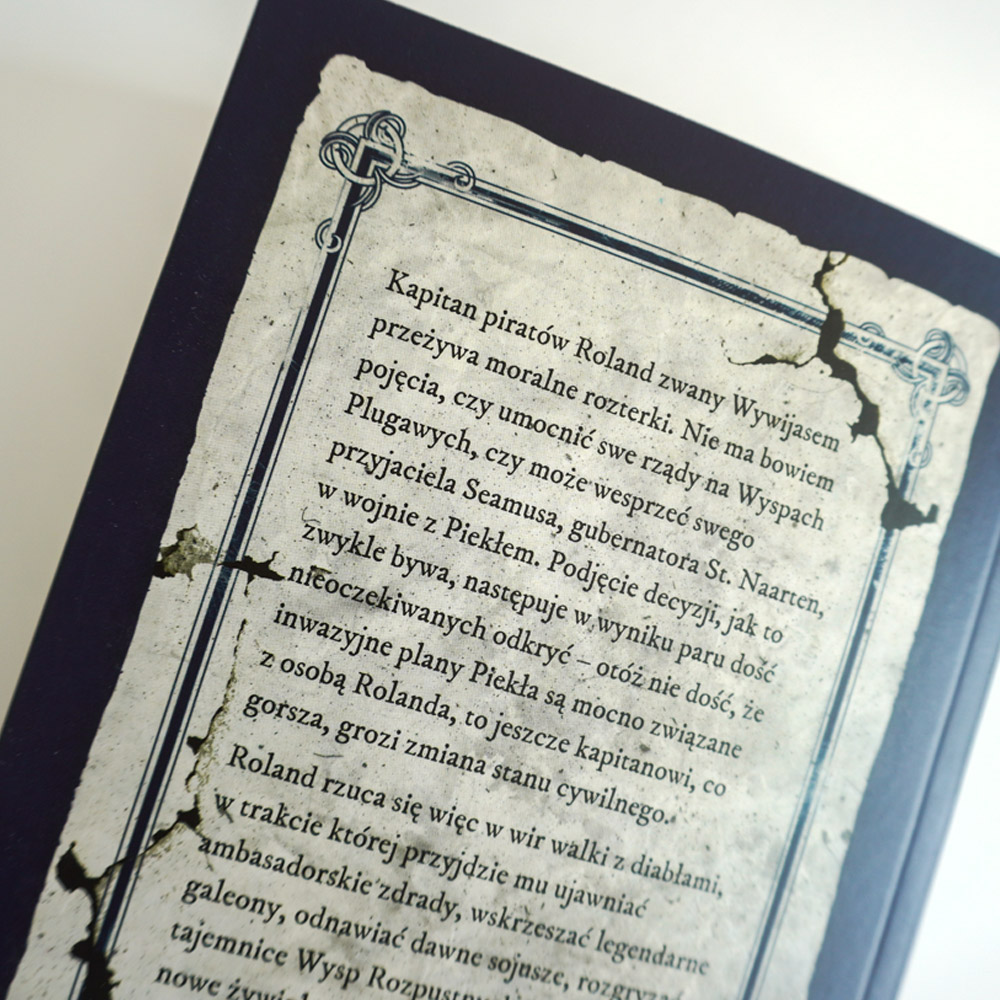 Kapitan piratów Roland zwany Wywijasem
przeżywa moralne rozterki. Nie ma bowiem
pojęcia, czy umocnić swe rządy na Wyspach
Plugawych, czy może wesprzeć swego
przyjaciela Seamusa, gubernatora St. Naarten,
w wojnie z Piekłem. Podjęcie decyzji, jak to
zwykle bywa, następuje w wyniku paru dość
nieoczekiwanych odkryć – otóż nie dość, że
inwazyjne plany Piekła są mocno związane
z osobą Rolanda, to jeszcze kapitanowi, co
gorsza, grozi zmiana stanu cywilnego.
Roland rzuca się więc w wir walki z diabłami,
w trakcie której przyjdzie mu ujawniać
ambasadorskie zdrady, wskrzeszać legendarne
galeony, odnawiać dawne sojusze,
tajemnice Wysp
nowe